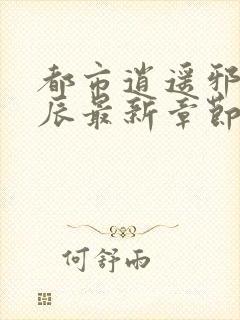 都市逍遥邪
辰最新章節
何舒雨